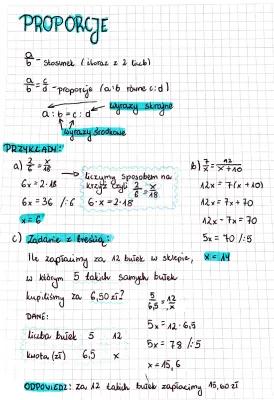 PROPORCJE
a/b - stosunek (iloraz z 2 liczb)
a/b = c/d - proporcja (a:b równe c:d)
wyrazy skrajne
a : b = c : d
wyrazy środkowe
PRZYKŁADY:
a) 2/6 = x/18
6x = 2·18
6x = 36 /:6
x = 6
liczymy sposobem na
krzyż czyli 2/6 = x/18
6·x = 2·18
b) 7/x = 12/x+10
12x = 7(x+10)
12x = 7x+70
12x - 7x = 70
5x = 70 /:5
x = 14
c) Zadanie z treścią:
Ile zapłacimy za 12 bułek w sklepie,
w którym 5 takich samych bułek
kupiliśmy za 6,50 zł?
DANE:
liczba bułek 5 12
kwota (zł) 6,5 x
5/6,5 = 12/x
5x = 12·6,5
5x = 78 /:5
x = 15,6
ODPOWIEDŹ: za 12 takich bułek zapłacimy 15,60 zł